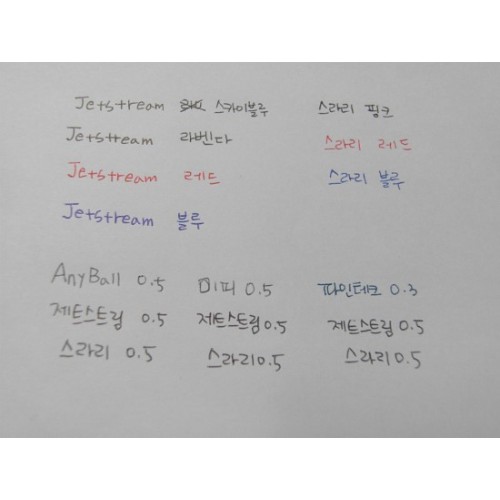 Jetstream 스카이블루 스라리 핑크
Jetstream 라벤다 스라리 레드
Jetstream 레드 스라리 블루
Jetstream 블루
AnyBall 0.5 미피 0.5 파인테크 0.3
제트스트림 0.5 제트스트림 0.5 제트스트림 0.5
스라리 0.5 스라리 0.5 스라리 0.5